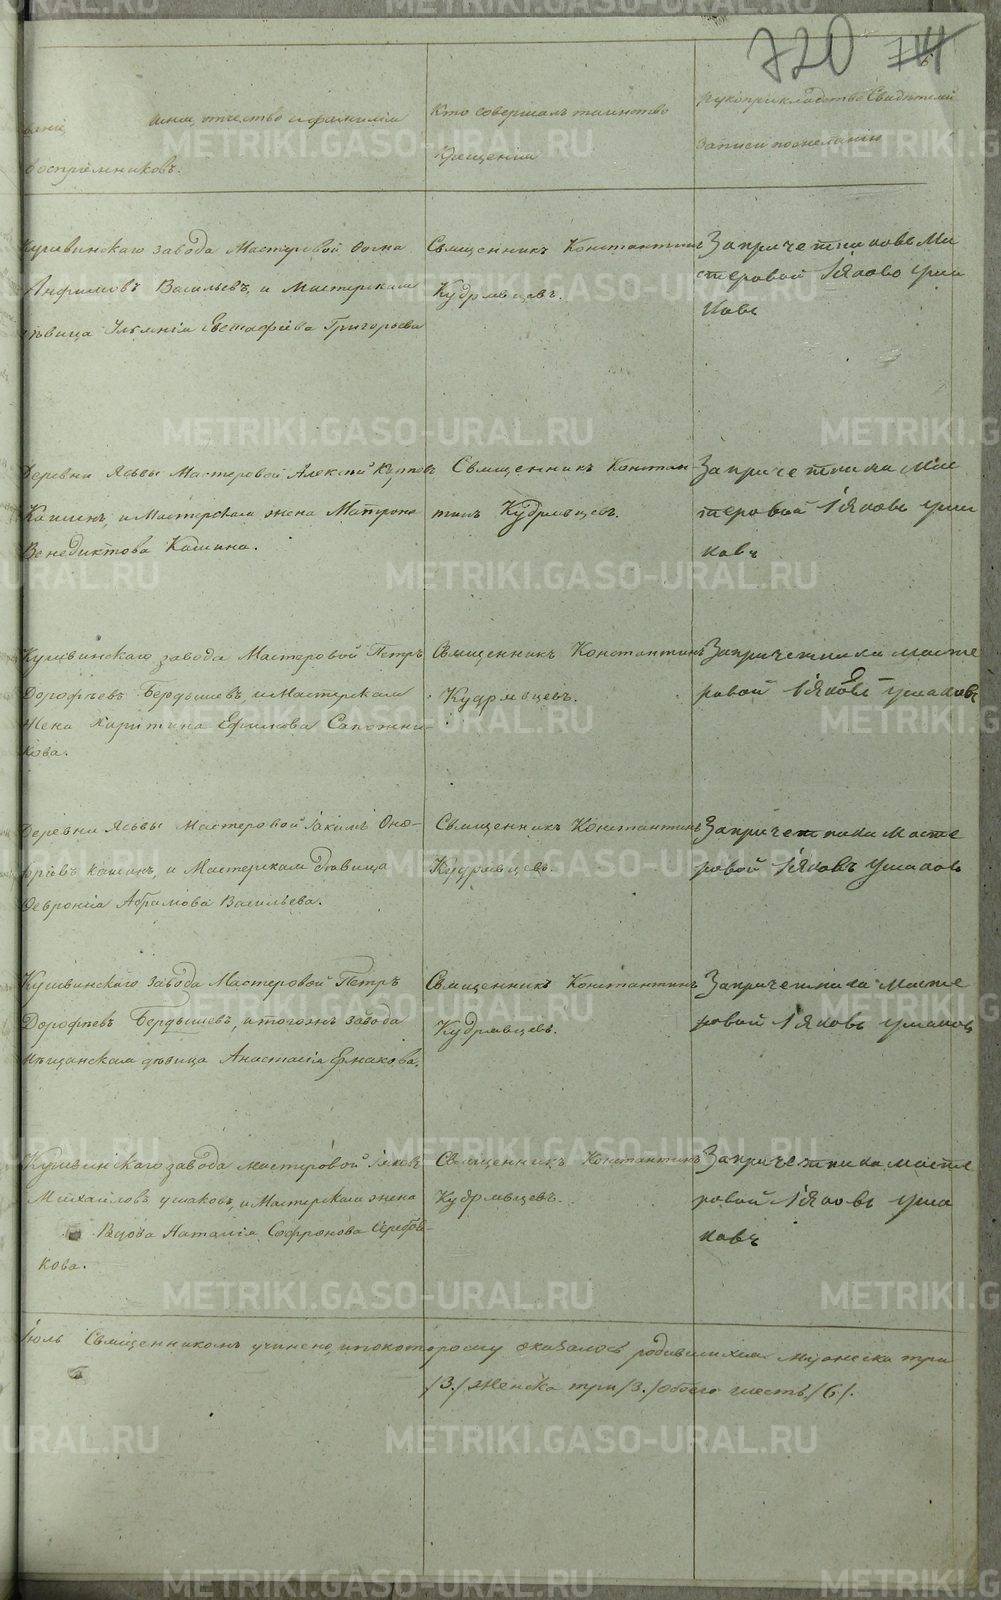 720
имя, отчество и фамилія
воспріемниковъ.
Кто совершалъ таинство
крещенія
Рукоприкладство Свидѣтелей
записи по желанію
Кушвинскаго завода Мастеровой Фома
Анфимовъ Васильевъ, и Мастерская
дѣвица Евстафіева Григорьева
Священникъ Константинъ
Кудрявцевъ.
За причетниковъ Ма
стеровой Іяковъ Уша
ковъ
Деревни Ясьвы Мастеровой Алексѣй Карповъ
Кашинъ, и Мастерская жена Матрона
Венедиктова Кашина.
Священникъ Констан-
тинъ Кудрявцевъ.
За причетника Мас
теровой Іяковъ Уша
ковъ
Кушвинскаго завода Мастеровой Петръ
Дорофѣевъ Бердышевъ, и Мастерская
жена Харитина Ефимова Сапожни-
кова.
Священникъ Константинъ
Кудрявцевъ.
За причетника масте
ровой Іяковъ Ушаковъ
Деревни Ясьвы Мастеровой Іакимъ Оно-
фріевъ Кашинъ, и Мастерская дѣвица
Февронія Абрамова Васильева.
Священникъ Константинъ
Кудрявцевъ.
За причетника Масте
ровой Іяковъ Ушаковъ
Кушвинскаго завода Мастеровой Петръ
Дорофѣевъ Бердышевъ, и тогожъ завода
мѣщанская дѣвица Анастасія Ермакова.
Священникъ Константинъ
Кудрявцевъ.
За причетника Масте
ровой Іяковъ Ушаковъ
Кушвинскаго завода мастеровой Іяковъ
Михайловъ Ушаковъ, и Мастерская жена
Вдова Наталія Софронова Серебря-
кова.
Священникъ Константинъ
Кудрявцевъ.
За причетника масте
ровой Іяковъ Уша
ковъ
Іюль Священникомъ учинено, и по которому оказалось родившихся мужеска три
/3./ женска три /3./ обоего шесть /6/.
METRIKI.GASO-URAL.RU